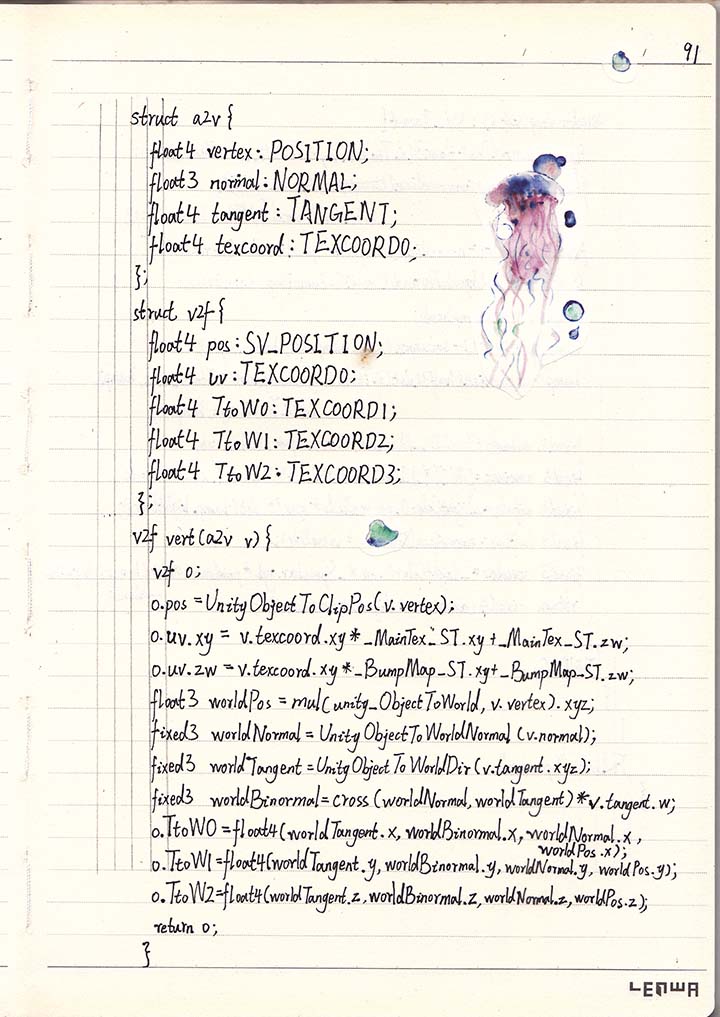 91
struct a2v {
float4 vertex: POSITION;
float3 normal: NORMAL;
float4 tangent: TANGENT;
float4 texcoord: TEXCOORD0;
};
struct v2f {
float4 pos: SV_POSITION;
float4 uv: TEXCOORD0;
float4 TtoW0: TEXCOORD1;
float4 TtoW1: TEXCOORD2;
float4 TtoW2: TEXCOORD3;
};
v2f vert(a2v v) {
v2f o;
o.pos = UnityObjectToClipPos(v.vertex);
o.uv.xy = v.texcoord.xy * _MainTex_ST.xy + _MainTex_ST.zw;
o.uv.zw = v.texcoord.xy * _BumpMap_ST.xy + _BumpMap_ST.zw;
float3 worldPos = mul(unity_ObjectToWorld, v.vertex).xyz;
fixed3 worldNormal = UnityObjectToWorldNormal(v.normal);
fixed3 worldTangent = UnityObjectToWorldDir(v.tangent.xyz);
fixed3 worldBinormal = cross(worldNormal, worldTangent) * v.tangent.w;
o.TtoW0 = float4(worldTangent.x, worldBinormal.x, worldNormal.x,
worldPos.x);
o.TtoW1 = float4(worldTangent.y, worldBinormal.y, worldNormal.y, worldPos.y);
o.TtoW2 = float4(worldTangent.z, worldBinormal.z, worldNormal.z, worldPos.z);
return o;
}
LENWA